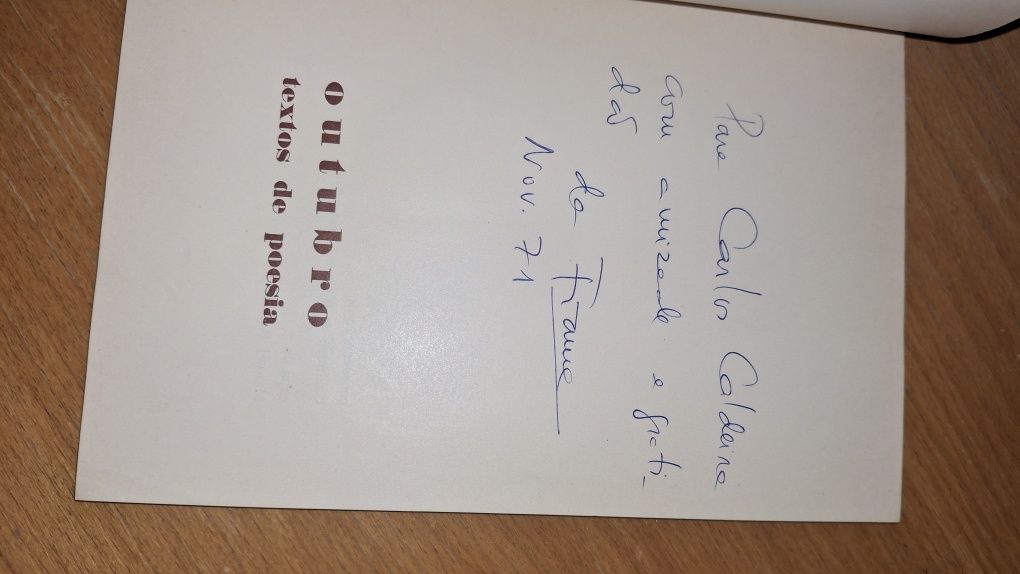 Para Carlos Caldeira
com amizade e grati-
dão
da Fiama
Nov. 71
outubro
textos de poesia